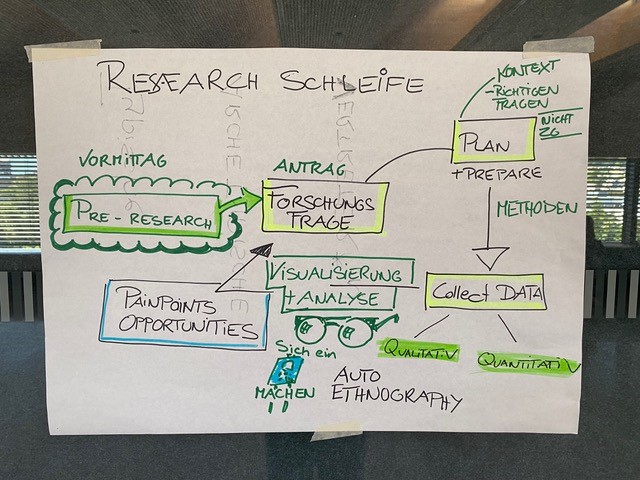 RESEARCH SCHLEIFE
KONTEXT
-RICHTIGEN
FRAGEN
NICHT
ZG
PLAN
+PREPARE
VORMITTAG
PRE-RESEARCH
ANTRAG
FORSCHUNGS
FRAGE
METHODEN
PAINPOINTS
OPPORTUNITIES
VISUALISIERUNG
+ANALYSE
COLLECT DATA
QUALITATIV
QUANTITATIV
Sich ein
MACHEN
AUTO
ETHNOGRAPHY